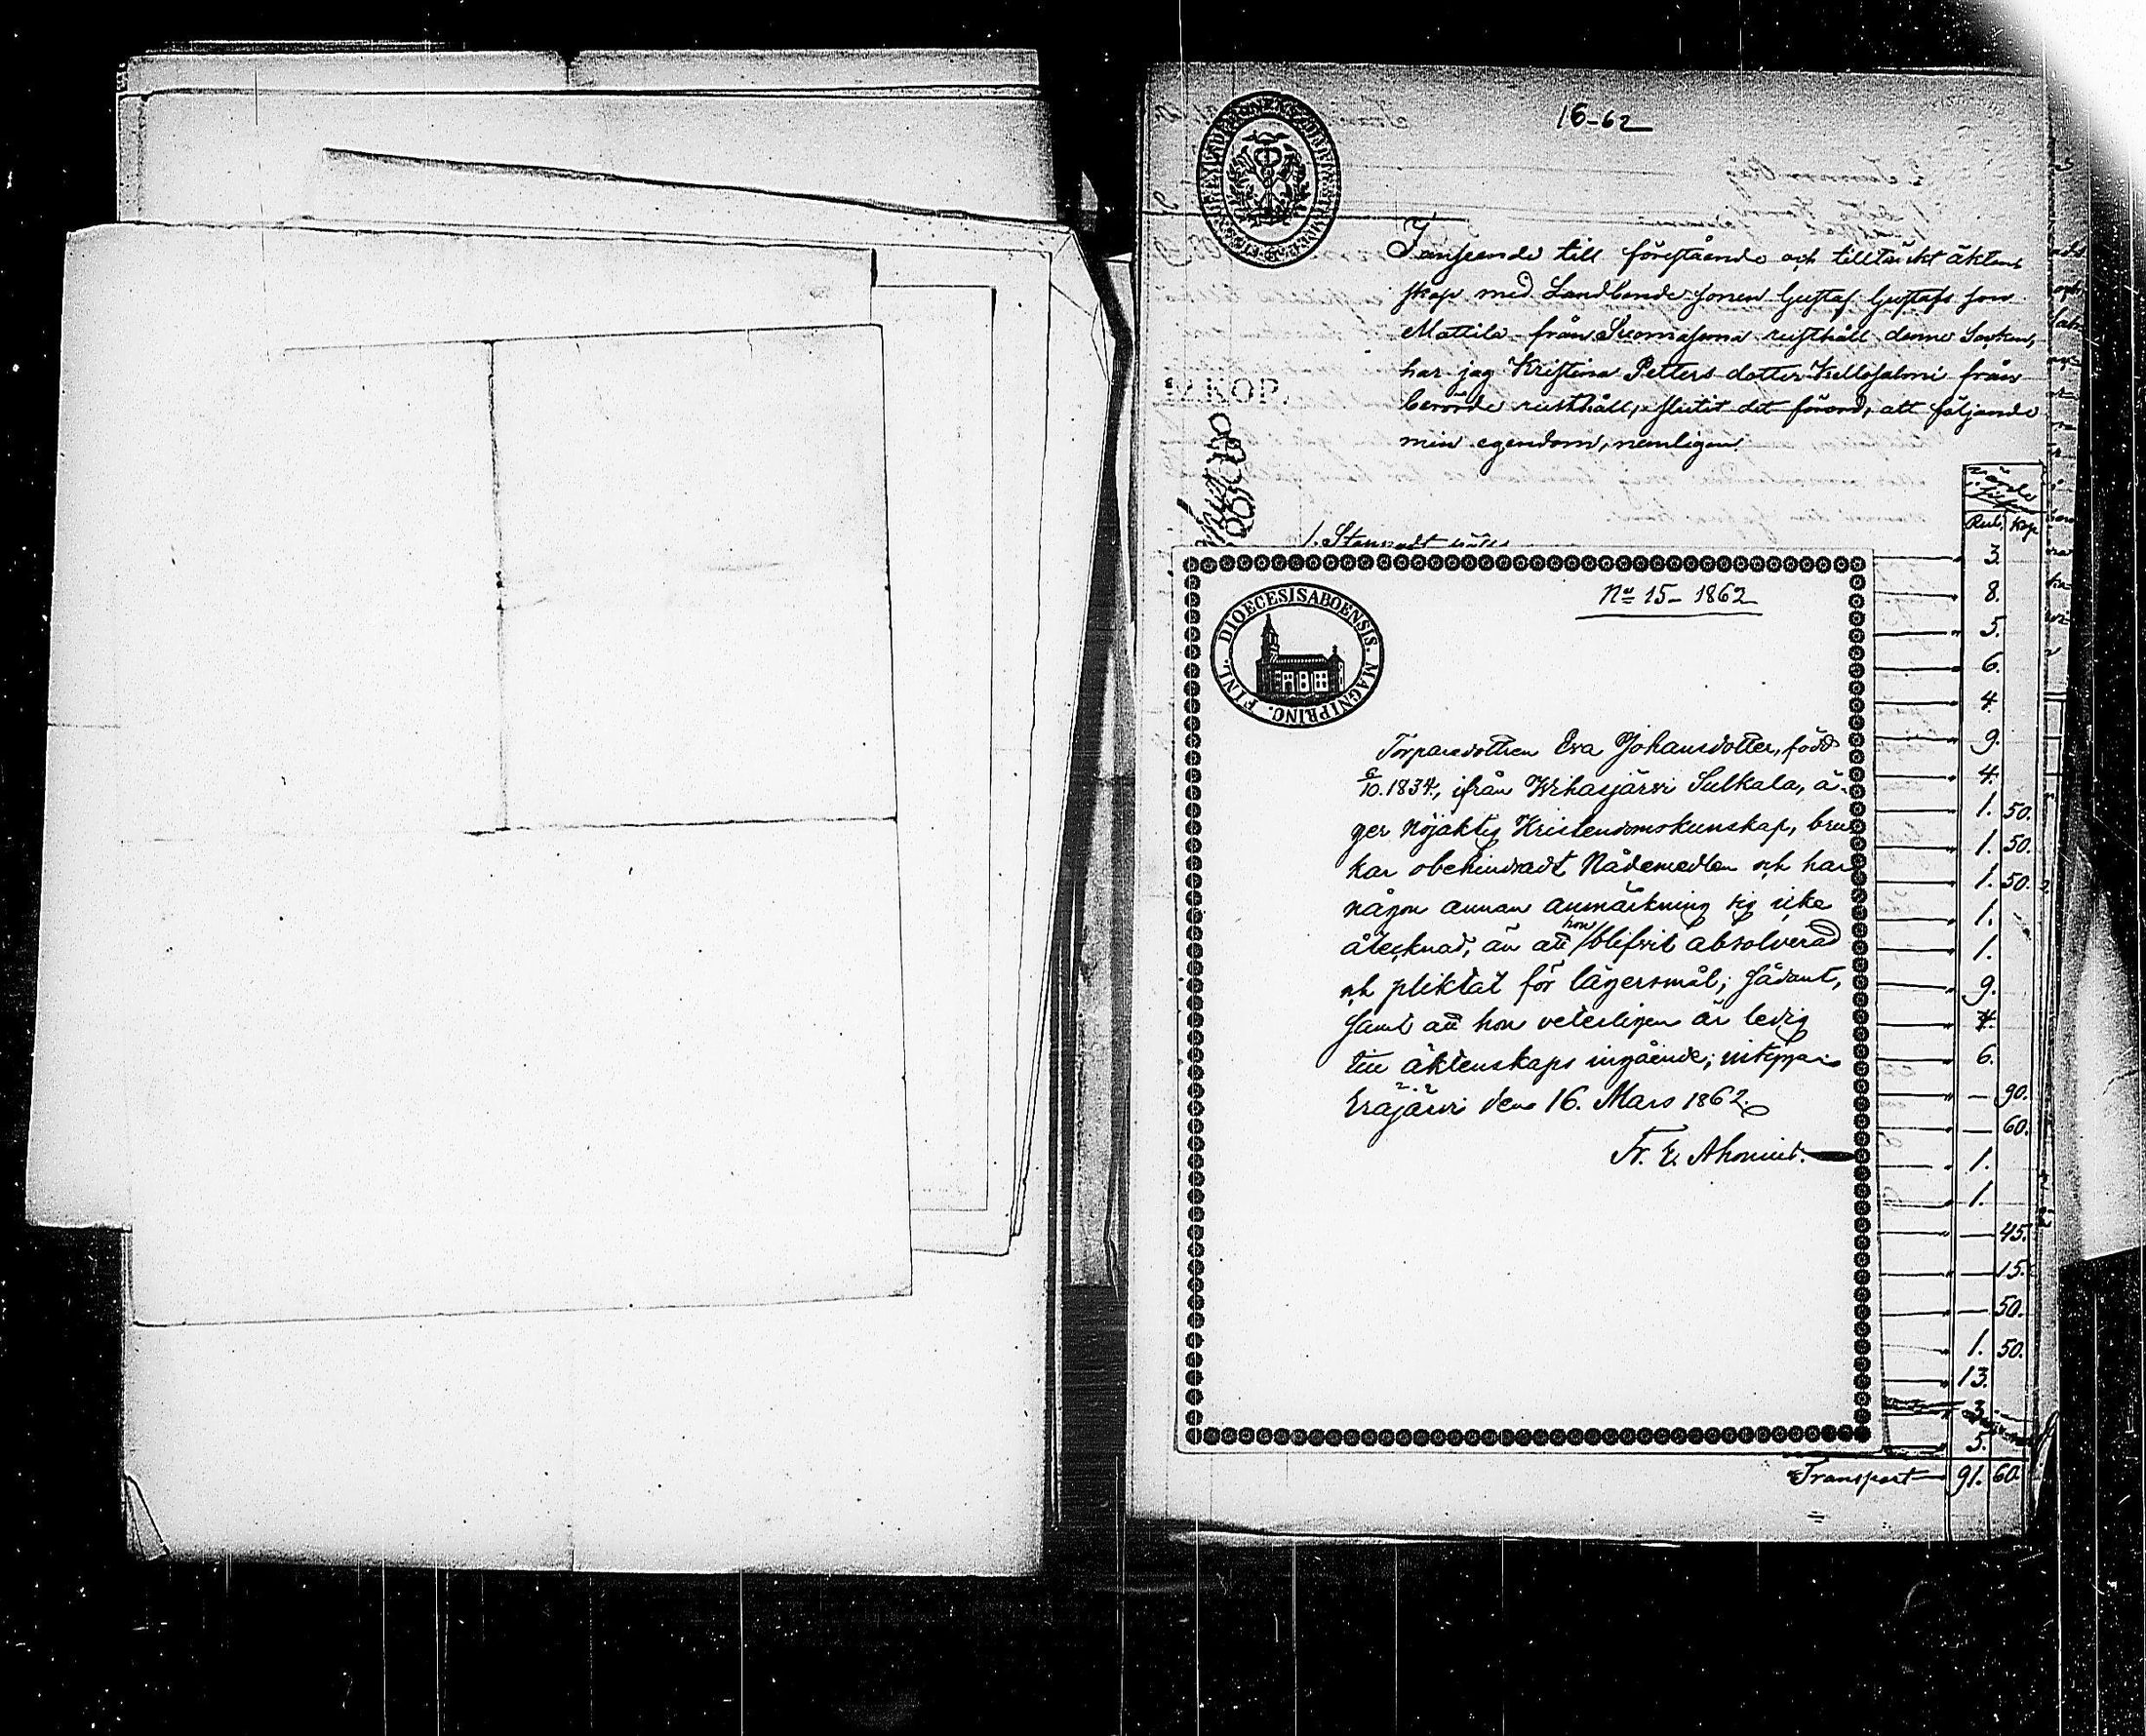 16-62
I anseende till förestående och tilltänkt äkten-
skap med Landbonde sonen Gustaf Gustafs son
Mattila från Suomasema rusthåll denne Socken,
har jag Kristina Petters dotter från
berörde rusthåll, slutit det förord, att följande
min egendom, nemligen:
12 KOP.
Rub. Kop
1. Stennadt
3.
8.
5.
6.
4.
9.
4.
1. 50.
1. 50.
1. 50.
1.
1.
9.
4.
6.
— 90.
— 60.
1.
1.
— 45.
— 15.
— 50.
1. 50.
13.
3.
5.
Transport 91. 60.
No 15- 1862
FINL. DIOECESIS ABOENSIS. MAGNI PRINC.
Torparedottren Eva Johansdotter, född
6/10. 1834, ifrån Wihasjärwi Sulkala, ä-
ger nöjaktig Kristendomskunskap, bru-
kar obehindradt Nådemedlen och har
någon annan anmärkning sig icke
åtecknad, än att hon blifvit absolverad
och pliktat för lägersmål; sådant,
samt att hon veterligen är ledig
till äktenskaps ingående; intygar:
Eräjärvi den 16. Mars 1862.
Fr. E.